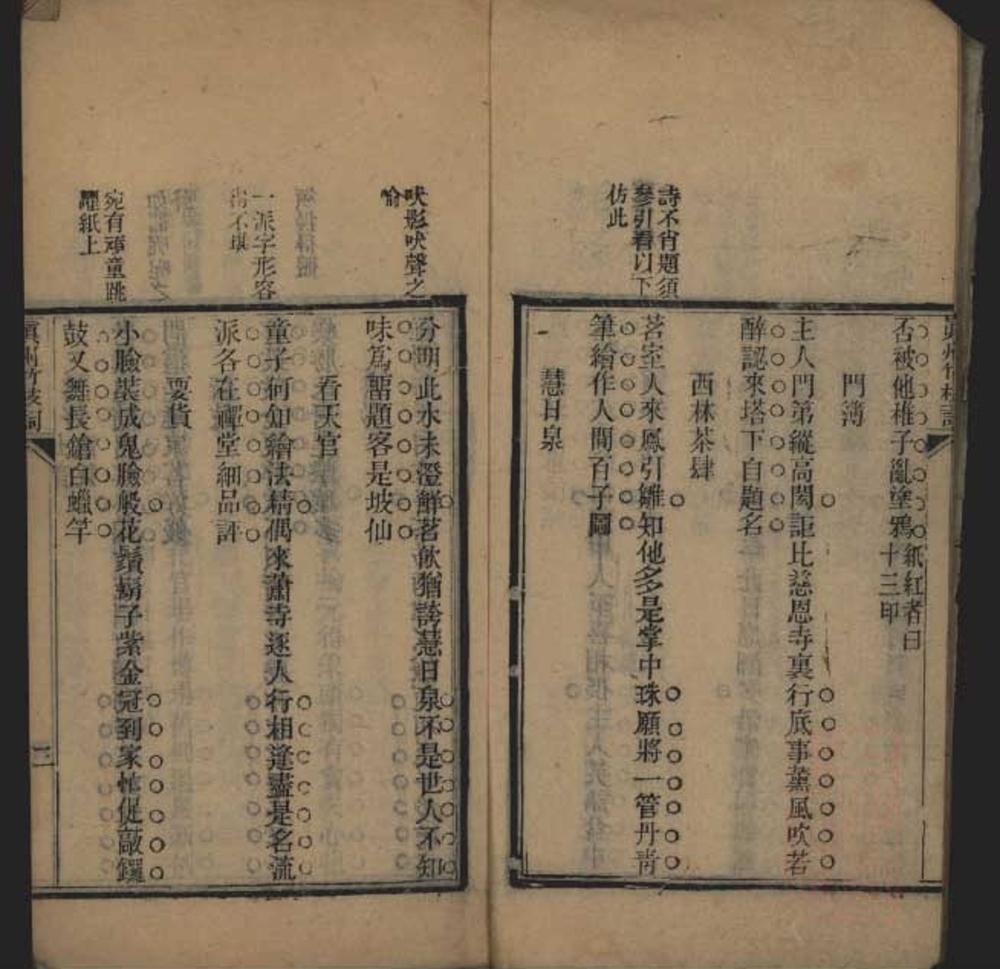 否被他稚子亂塗鴉紙紅者曰
十三印
門簿
主人門第縱高閎詎比慈恩寺裏行底事薰風吹若
醉認來塔下自題名
西林茶肆
詩不肖題須
參引看以下
仿此
茗室人來鳳引雛知他多是掌中珠願將一管丹靑
筆繪作人間百子圖
慧日泉
吠影吠聲之
喻
分明此水未澄鮮茗飲猶誇慧日泉不是世人不知
味爲畱題客是坡仙
看天官
一派字形容
出不堪
童子何知繪法精偶來蕭寺逐人行相逢盡是名流
派各在禪堂細品評
耍貨
宛有頑童跳
躍紙上
小臉裝成鬼臉般花鬚霸子紫金冠到家忙促敲鑼
鼓又舞長鎗白蠟竿
眞州竹枝詞
三